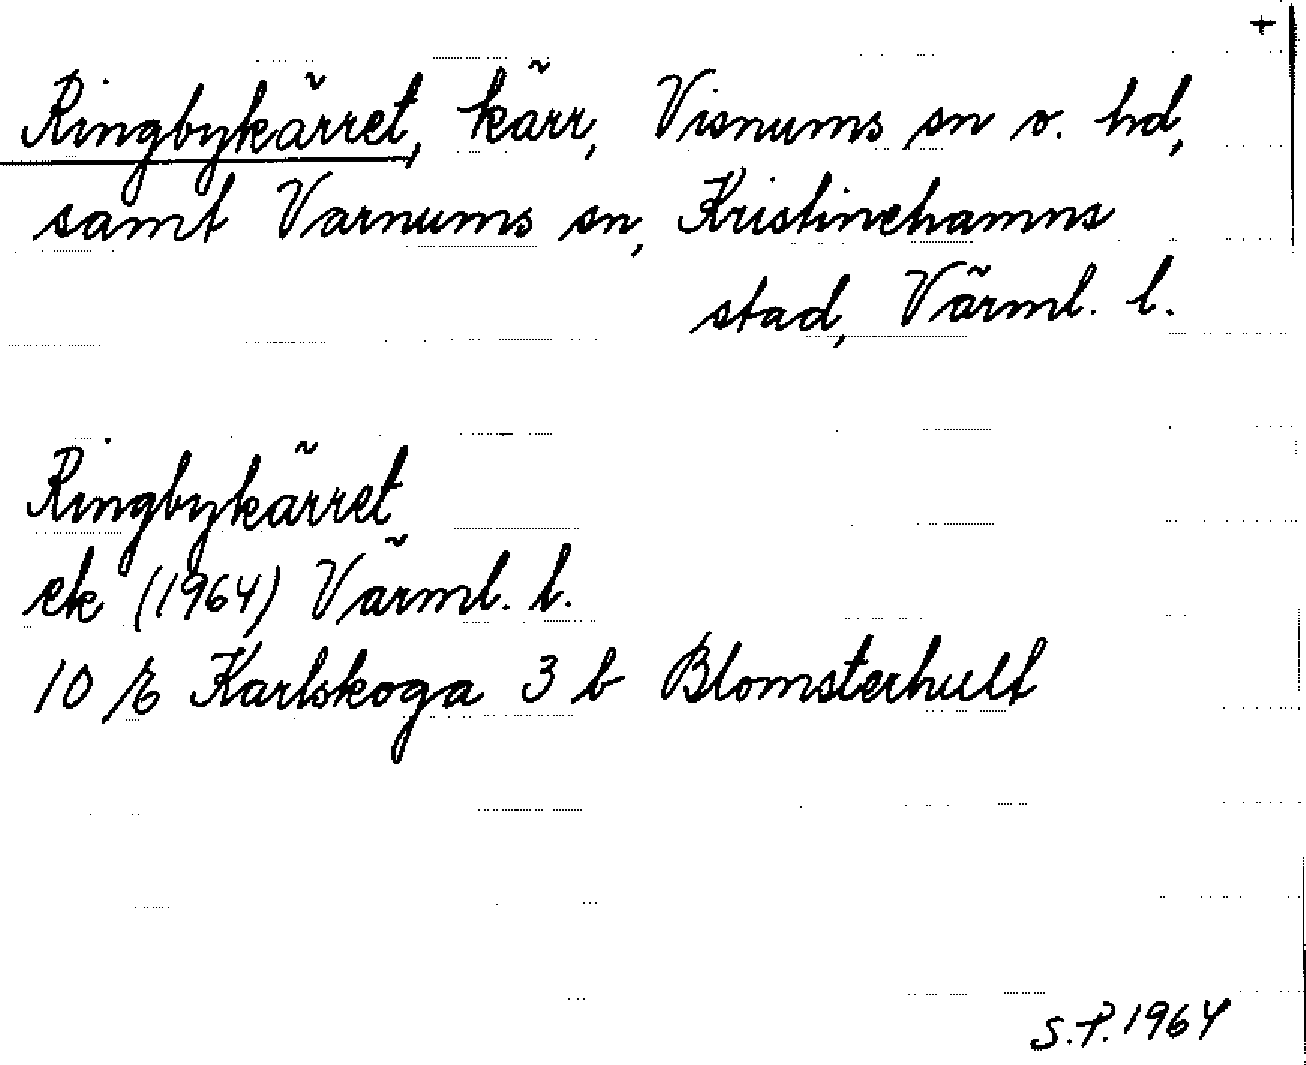 +
Ringbykärret, kärr, Visnums sn o. hd,
samt Varnums sn, Kristinehamns
stad, Värml. l.
Ringbykärret
ek (1964) Värml. l.
10 E Karlskoga 3 b Blomsterhult
S.P. 1964